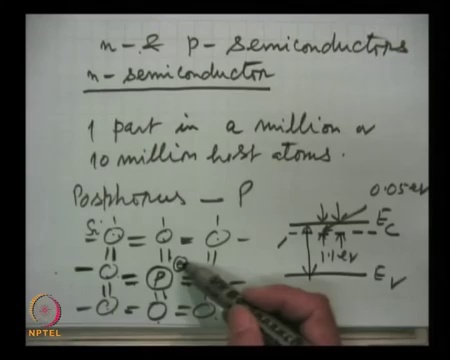 n- & p- semiconductors
n- semiconductor
1 part in a million or
10 million host atoms.
Posphorus - P
0.05 ev
Si
Ec
P
1.1 ev
Ev
NPTEL